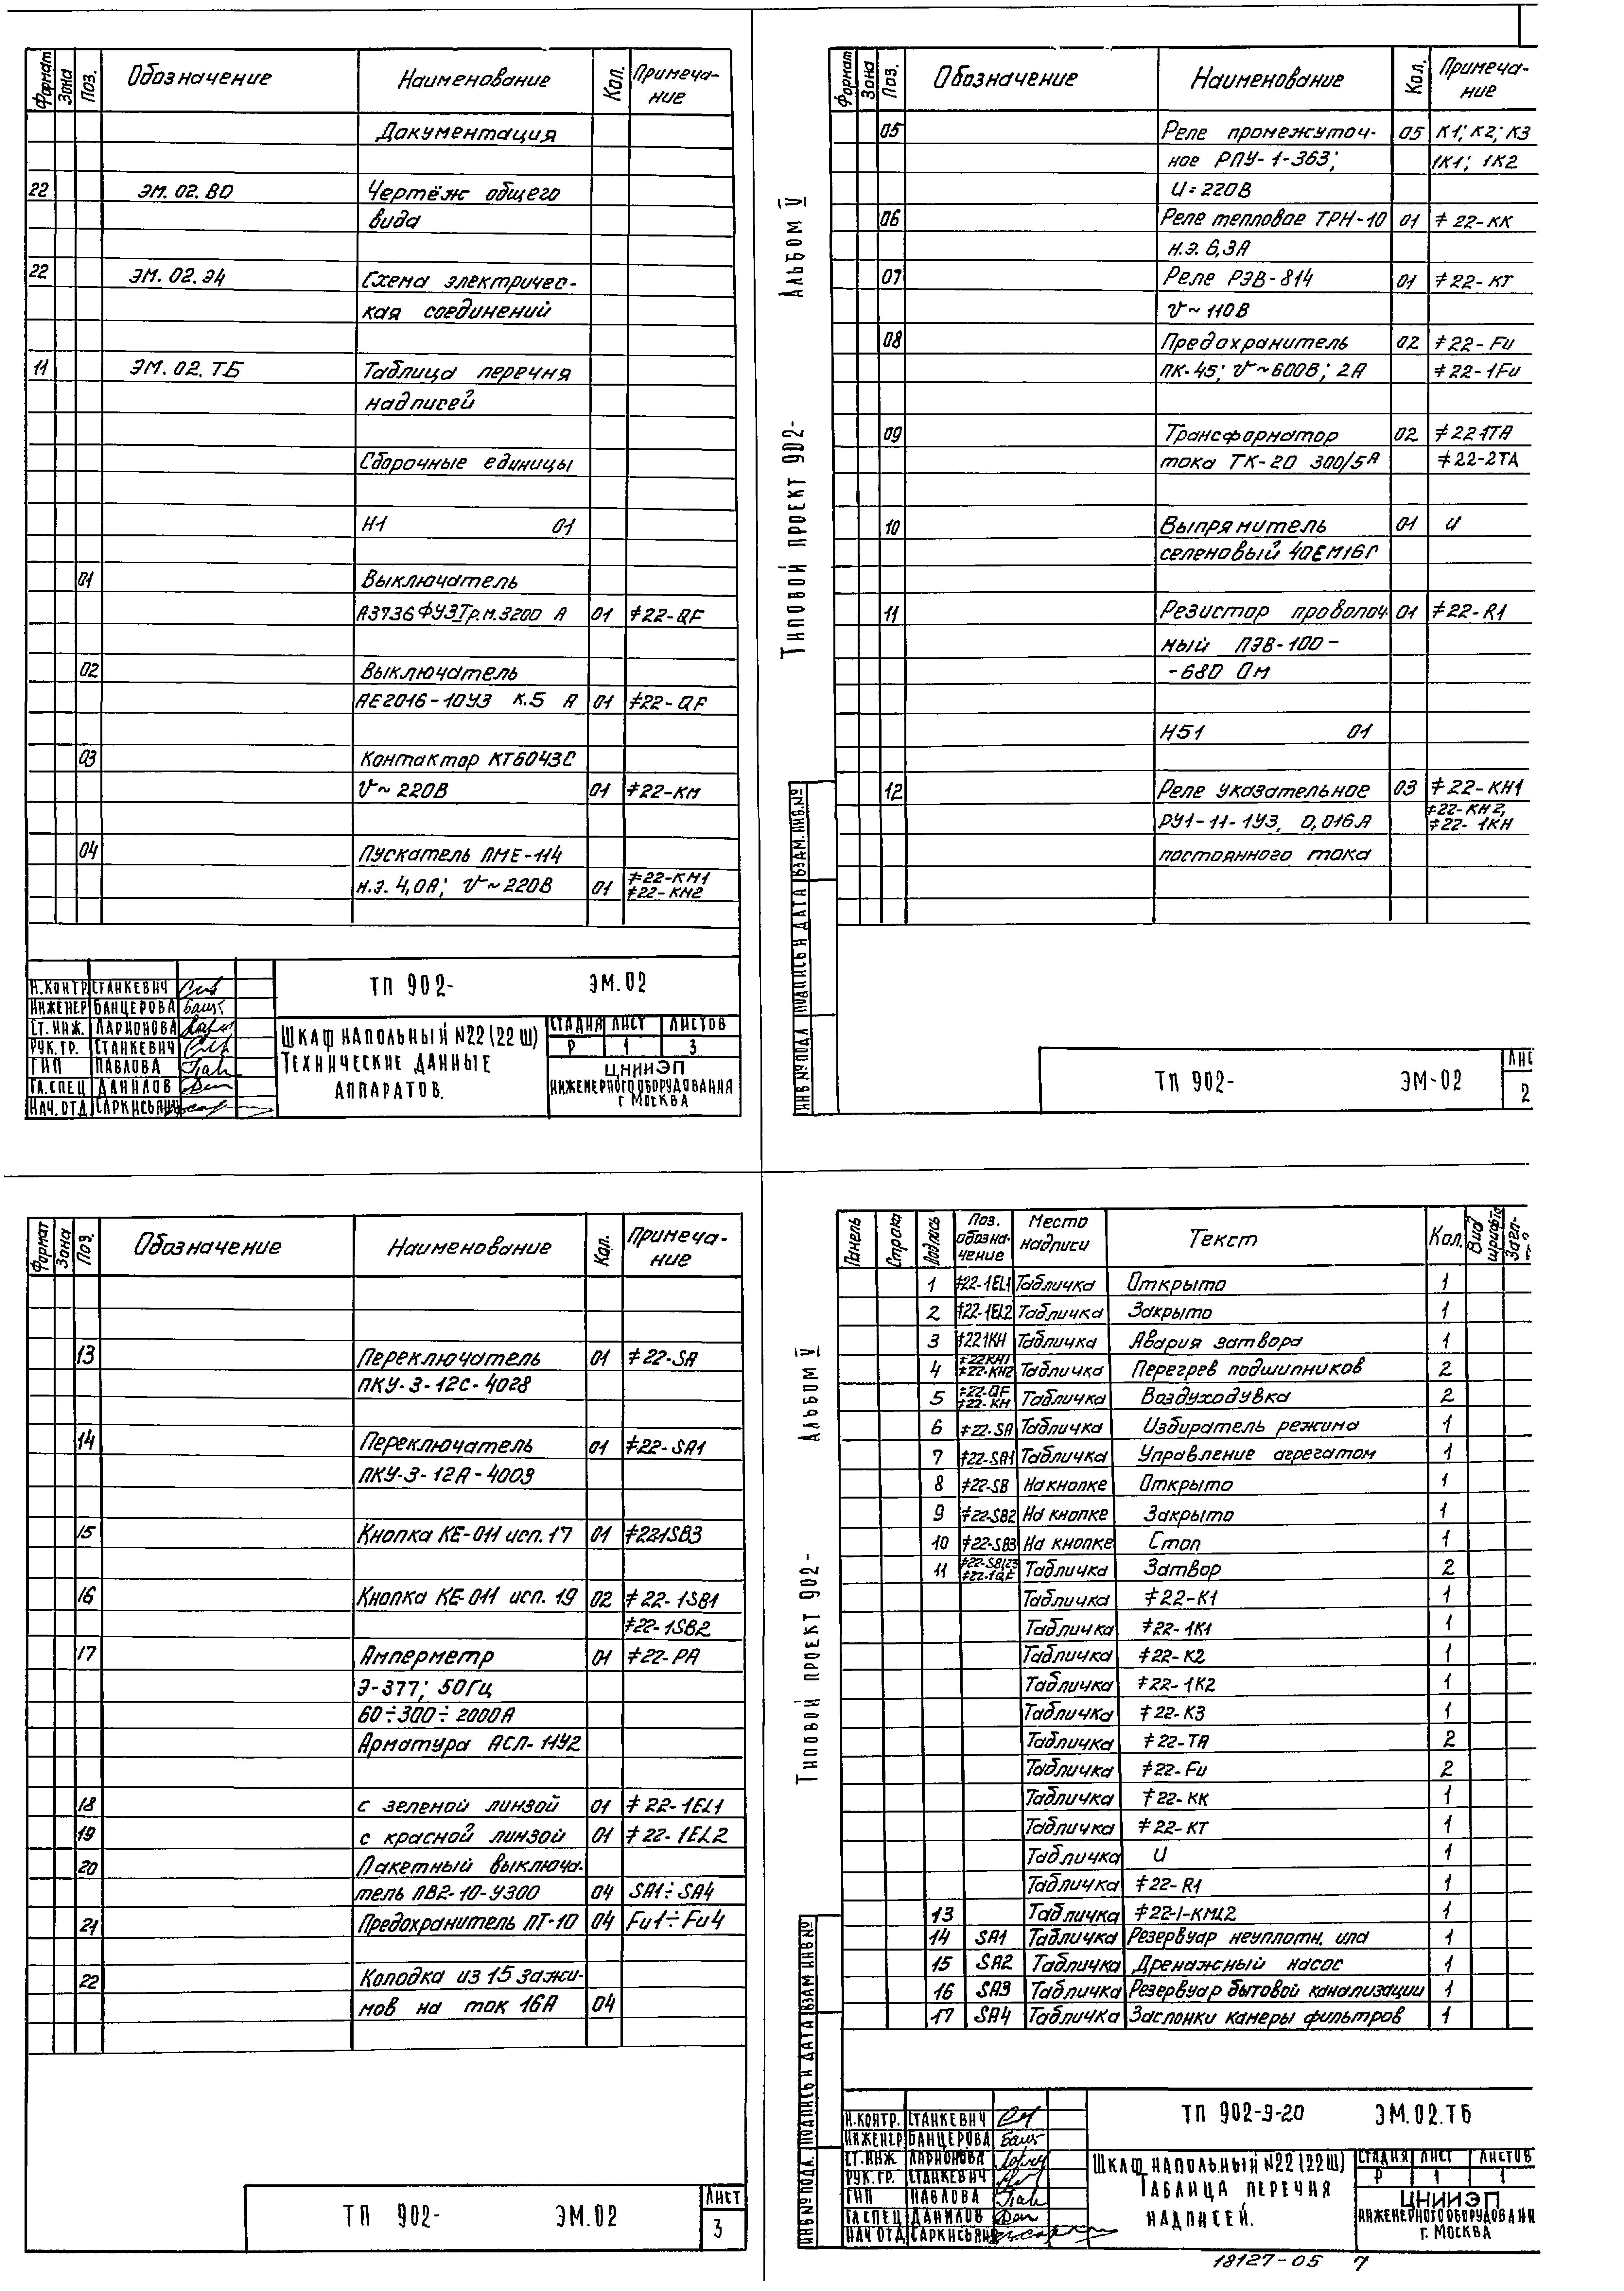 Формат Зона Поз. Обозначение Наименование Кол. Примеча-
ние
Документация
22 ЭМ. 02. ВО Чертёж общего
вида
22 ЭМ. 02. Э4 Схема электричес-
кая соединений
11 ЭМ. 02. ТБ Таблица перечня
надписей
Сборочные единицы
Н1 01
01 Выключатель
А3736ФУ3 Iр.м.3200 А 01 ≠22-QF
02 Выключатель
АЕ2016-10У3 К.5 А 01 ≠22-QF
03 Контактор КТ6043С
V~ 220В 01 ≠22-КМ
04 Пускатель ПМЕ-114
н.э. 4,0А; V~220В 01 ≠22-КМ1
≠22-КМ2
Н.КОНТР. СТАНКЕВИЧ
ИНЖЕНЕР БАНЦЕРОВА
СТ. ИНЖ. ЛАРИОНОВА
РУК. ГР. СТАНКЕВИЧ
ГИП ПАВЛОВА
ГЛ.СПЕЦ ДАНИЛОВ
НАЧ.ОТД САРКИСЬЯН
ТП 902- ЭМ.02
ШКАФ НАПОЛЬНЫЙ N22(22Ш)
ТЕХНИЧЕСКИЕ ДАННЫЕ
АППАРАТОВ.
СТАДИЯ ЛИСТ ЛИСТОВ
Р 1 3
ЦНИИЭП
ИНЖЕНЕРНОГО ОБОРУДОВАНИЯ
Г МОСКВА
АЛЬБОМ V
ТИПОВОЙ ПРОЕКТ 902-
Формат Зона Поз. Обозначение Наименование Кол. Примеча-
ние
05 Реле промежуточ- 05 К1; К2; К3
ное РПУ-1-363; 1К1; 1К2
U=220В
06 Реле тепловое ТРН-10 01 ≠22-КК
н.э. 6,3А
07 Реле РЭВ-814 01 ≠22-КТ
V~ 110В
08 Предохранитель 02 ≠22-Fu
ПК-45; V~600В; 2А ≠22-1Fu
09 Трансформатор 02 ≠22-1ТА
тока ТК-20 300/5А ≠22-2ТА
10 Выпрямитель 01 U
селеновый 40ЕМ16Г
11 Резистор проволоч 01 ≠22-R1
ный ПЭВ-100-
-680 Ом
Н51 01
12 Реле указательное 03 ≠22-КН1
РУ1-11-1У3, 0,016А ≠22-КН2,
≠22-1КН
постоянного тока
ИНВ №ПОДЛ ПОДПИСЬ И ДАТА ВЗАМ.ИНВ.№
ТП 902- ЭМ-02 ЛИС
2
Формат Зона Поз. Обозначение Наименование Кол. Примеча-
ние
13 Переключатель 01 ≠22-SA
ПКУ-3-12С-4028
14 Переключатель 01 ≠22-SA1
ПКУ-3-12А-4003
15 Кнопка КЕ-011 исп. 17 01 ≠221SB3
16 Кнопка КЕ-011 исп. 19 02 ≠22-1SB1
≠22-1SB2
17 Амперметр 01 ≠22-РА
Э-377; 50Гц
60÷300÷2000А
Арматура АСЛ-11У2
18 с зеленой линзой 01 ≠22-1EL1
19 с красной линзой 01 ≠22-1EL2
20 Пакетный выключа-
тель ПВ2-10-У300 04 SA1÷SA4
21 Предохранитель ПТ-10 04 Fu1÷Fu4
22 Колодка из 15 зажи-
мов на ток 16А 04
ТП 902- ЭМ.02 ЛИСТ
3
АЛЬБОМ V
ТИПОВОЙ ПРОЕКТ 902-
Панель Строка Надпись Поз. обозна-чение Место надписи Текст Кол. Вид шрифта
1 ≠22-1EL1 Табличка Открыто 1
2 ≠22-1EL2 Табличка Закрыто 1
3 ≠221КН Табличка Авария затвора 1
4 ≠22КН1 ≠22-КН2 Табличка Перегрев подшипников 2
5 ≠22-QF ≠22-КМ Табличка Воздуходувка 2
6 ≠22-SA Табличка Избиратель режима 1
7 ≠22-SA1 Табличка Управление агрегатом 1
8 ≠22-SB На кнопке Открыто 1
9 ≠22-SB2 На кнопке Закрыто 1
10 ≠22-SB3 На кнопке Стоп 1
11 ≠22-1QF Табличка Затвор 2
Табличка ≠22-К1 1
Табличка ≠22-1К1 1
Табличка ≠22-К2 1
Табличка ≠22-1К2 1
Табличка ≠22-К3 1
Табличка ≠22-ТА 2
Табличка ≠22-Fu 2
Табличка ≠22-КК 1
Табличка ≠22-КТ 1
Табличка U 1
Табличка ≠22-R1 1
13 Табличка 1
14 SA1 Табличка Резервуар неуплотн. ила 1
15 SA2 Табличка Дренажный насос 1
16 SA3 Табличка Резервуар бытовой канализации 1
17 SA4 Табличка Заслонки камеры фильтров 1
ИНВ №ПОДЛ. ПОДПИСЬ И ДАТА ВЗАМ ИНВ №
Н.КОНТР. СТАНКЕВИЧ
ИНЖЕНЕР БАНЦЕРОВА
СТ.ИНЖ ЛАРИОНОВА
РУК.ГР. СТАНКЕВИЧ
ГИП ПАВЛОВА
ГЛ СПЕЦ ДАНИЛОВ
НАЧ ОТД САРКИСЬЯН
ТП 902-9-20 ЭМ.02.ТБ
ШКАФ НАПОЛЬНЫЙ N22(22Ш)
ТАБЛИЦА ПЕРЕЧНЯ
НАДПИСЕЙ.
СТАДИЯ ЛИСТ ЛИСТОВ
Р 1 1
ЦНИИЭП
ИНЖЕНЕРНОГО ОБОРУДОВАНИ
Г. МОСКВА
18127-05 7